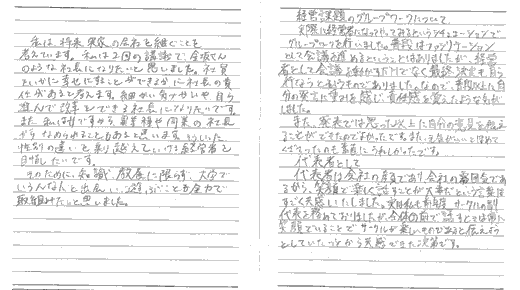 私は、将来、実家の会社を継ぐことを
考えています。私は2回の講義で、金坂さん
のような社長になりたいと思いました。社員
といかに幸せに働くことができるかに社長の責
任があると考えます。細かい気づかいや自ら
進んで改革をできる社長になりたいです。
また、私は女ですから、異業種や同業の社長
から なめられることもあると思います。そういった
性別の違いを乗り越えていける経営者を
目指したいです。
そのために、知識、飲食に限らず、大学で
いろんな人と出会い、遊ぶことも全力で
取り組みたいと思いました。
経営課題のグループワークについて
実際に経営者になってやってみるというシチュエーションで
グループワークを行いました。普段はファシリテーション
として会議を進めるということはありましたが、経営
者として会議を動かすだけでなく最終決定も自ら
行なうというものでありました。なので、普段以上に自
分の発言に重みを感じ、責任感を覚えたような気が
しました。
また、案外では思った以上に自分の意見を伝え
ることができたのでよかったです。また、主張がいいとほめて
くださったのも素直にうれしかったです。
代表者として
代表者は会社の顔であり、会社の雰囲気であ
るから、笑顔で楽しく話すことが大事だという言葉は
すごく共感いたしました。実は私も前年度、サークルの副
代表を務めておりましたが、全体の前で話すときは常に
笑顔でいることでサークルが楽しいものであると伝えよう
としていたことから共感できた次第です。